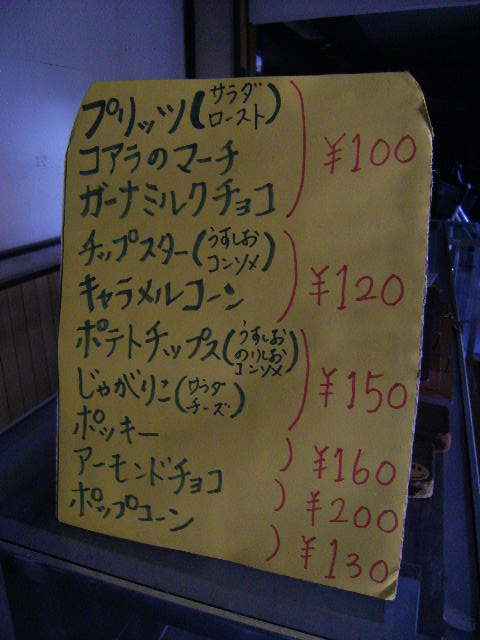 プリッツ(サラダ ロースト)
コアラのマーチ ¥100
ガーナミルクチョコ
チップスター(うすしお コンソメ)
キャラメルコーン ¥120
ポテトチップス(うすしお のりしお コンソメ)
じゃがりこ(サラダ チーズ) ¥150
ポッキー ¥160
アーモンドチョコ ¥200
ポップコーン ¥130